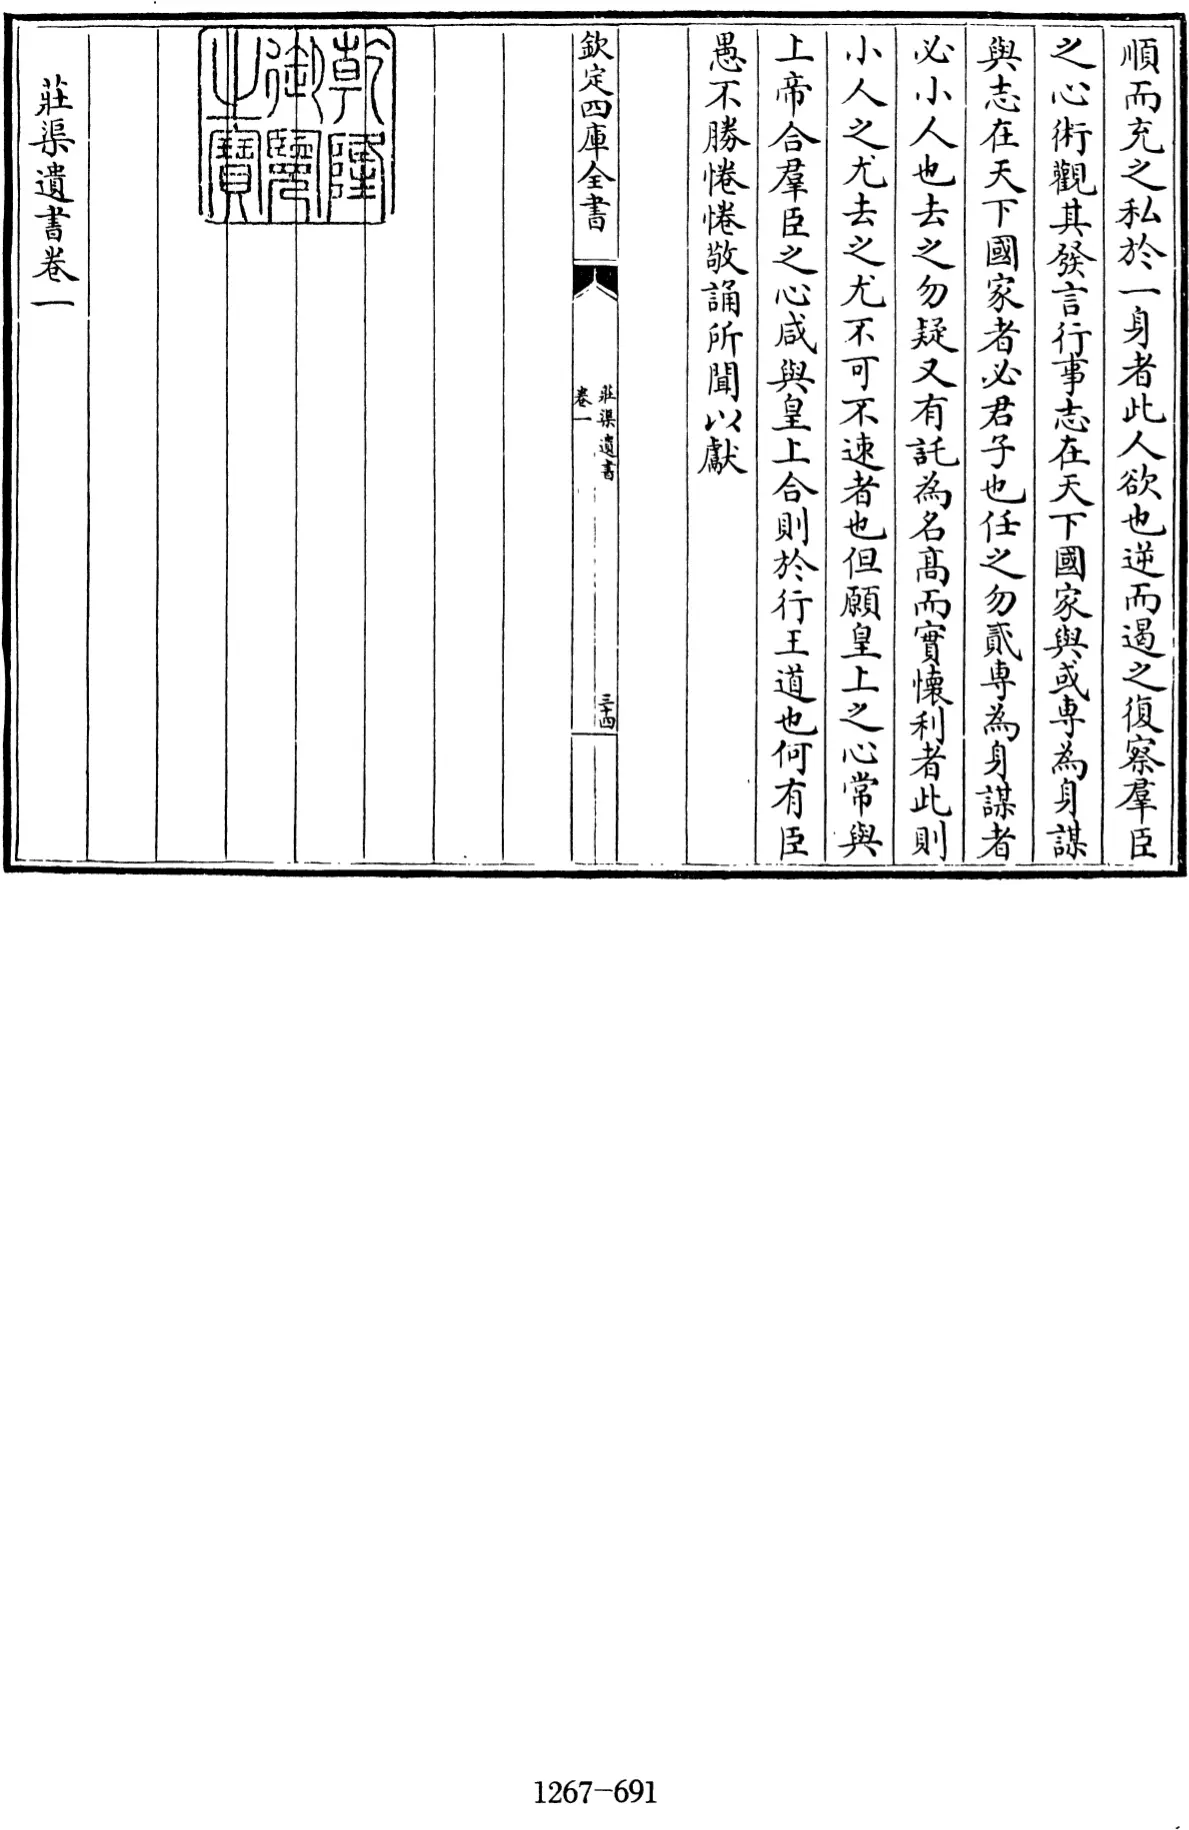 順而充之私於一身者此人欲也逆而遏之復察羣臣
之心術觀其發言行事志在天下國家與或専為身謀
與志在天下國家者必君子也任之勿貳専為身謀者
必小人也去之勿疑又有託為名髙而實懐利者此則
小人之尤去之尤不可不速者也但願皇上之心常與
上帝合羣臣之心咸與皇上合則於行王道也何有臣
愚不勝惓惓敬誦所聞以獻
欽定四庫全書
莊渠遺書
卷一
三十四
乾隆
御覽
之寶
莊渠遺書卷一
1267-691